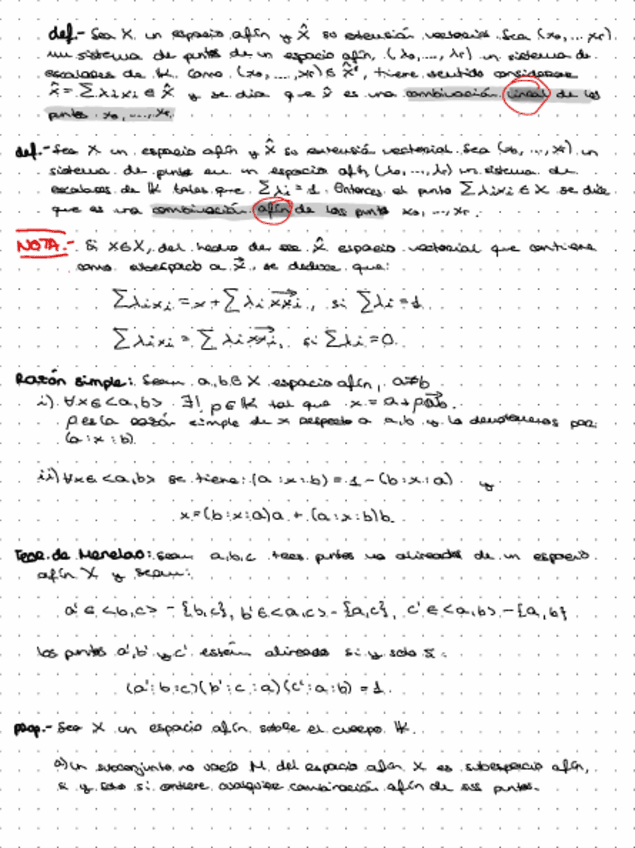 def.- Sea X un espacio afín y X̂ su extensión vectorial. Sea (x₀, ..., xᵣ)
un sistema de puntos de un espacio afín, (λ₀, ..., λᵣ) un sistema de
escalares de K. Como (x₀, ..., xᵣ) ∈ X̂ʳ, tiene sentido considerar
x̂ = ∑λᵢxᵢ ∈ X̂ y se dice que x̂ es una combinación lineal de los
puntos x₀, ..., xᵣ.
def.- Sea X un espacio afín y X̂ su extensión vectorial. Sea (x₀, ..., xᵣ) un
sistema de puntos en un espacio afín (λ₀, ..., λᵣ) un sistema de
escalares de K tales que ∑λᵢ = 1. Entonces el punto ∑λᵢxᵢ ∈ X se dice
que es una combinación afín de los puntos x₀, ..., xᵣ.
NOTA.- Si x ∈ X, del hecho de ser X̂ espacio vectorial que contiene
como subespacio a X⃗, se deduce que:
∑λᵢxᵢ = x + ∑λᵢ xxᵢ⃗, si ∑λᵢ = 1
∑λᵢxᵢ = ∑λᵢ xxᵢ⃗, si ∑λᵢ = 0.
Razón simple: Sean a, b ∈ X espacio afín, a ≠ b
i) ∀x ∈ <a, b> ∃! ρ ∈ K tal que x = a + ρab⃗.
ρ es la razón simple de x respecto a a, b y lo denotaremos por:
(a : x : b).
ii) ∀x ∈ <a, b> se tiene: (a : x : b) = 1 - (b : x : a) y
x = (b : x : a)a + (a : x : b)b.
Teor. de Menelao: sean a, b, c tres puntos no alineados de un espacio
afín X y sean:
a' ∈ <b, c> - {b, c}, b' ∈ <a, c> - {a, c}, c' ∈ <a, b> - {a, b}
los puntos a', b' y c' están alineados si y solo si:
(a' : b : c)(b' : c : a)(c' : a : b) = 1.
prop.- Sea X un espacio afín sobre el cuerpo K.
a) Un subconjunto no vacío M del espacio afín X es subespacio afín,
si y solo si contiene cualquier combinación afín de sus puntos.